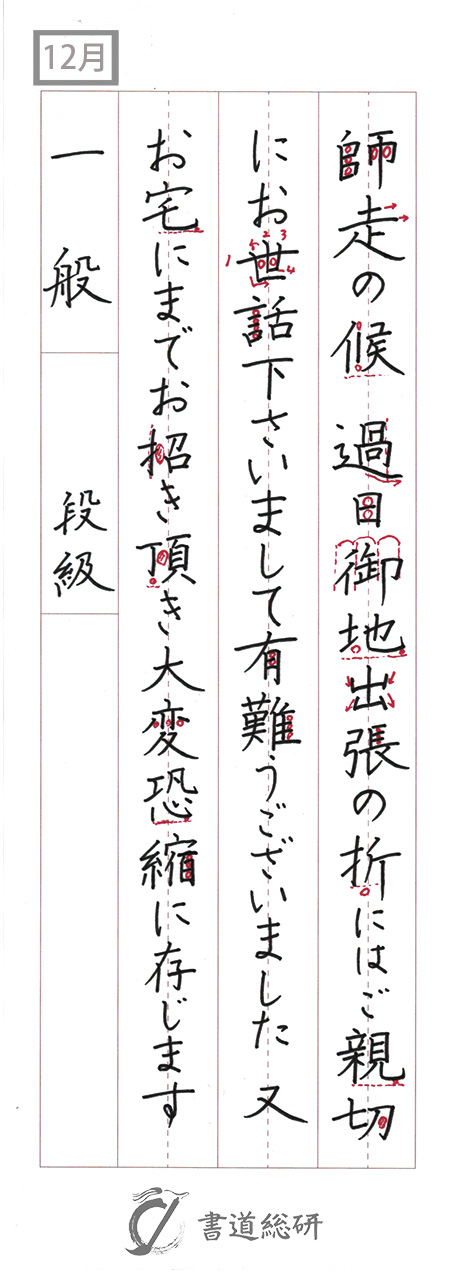 12月
師走の候 過日御地出張の折にはご親切
にお世話下さいまして有難うございました 又
お宅にまでお招き頂き大変恐縮に存じます
一般
段級
1 5 2 3 4
書道総研